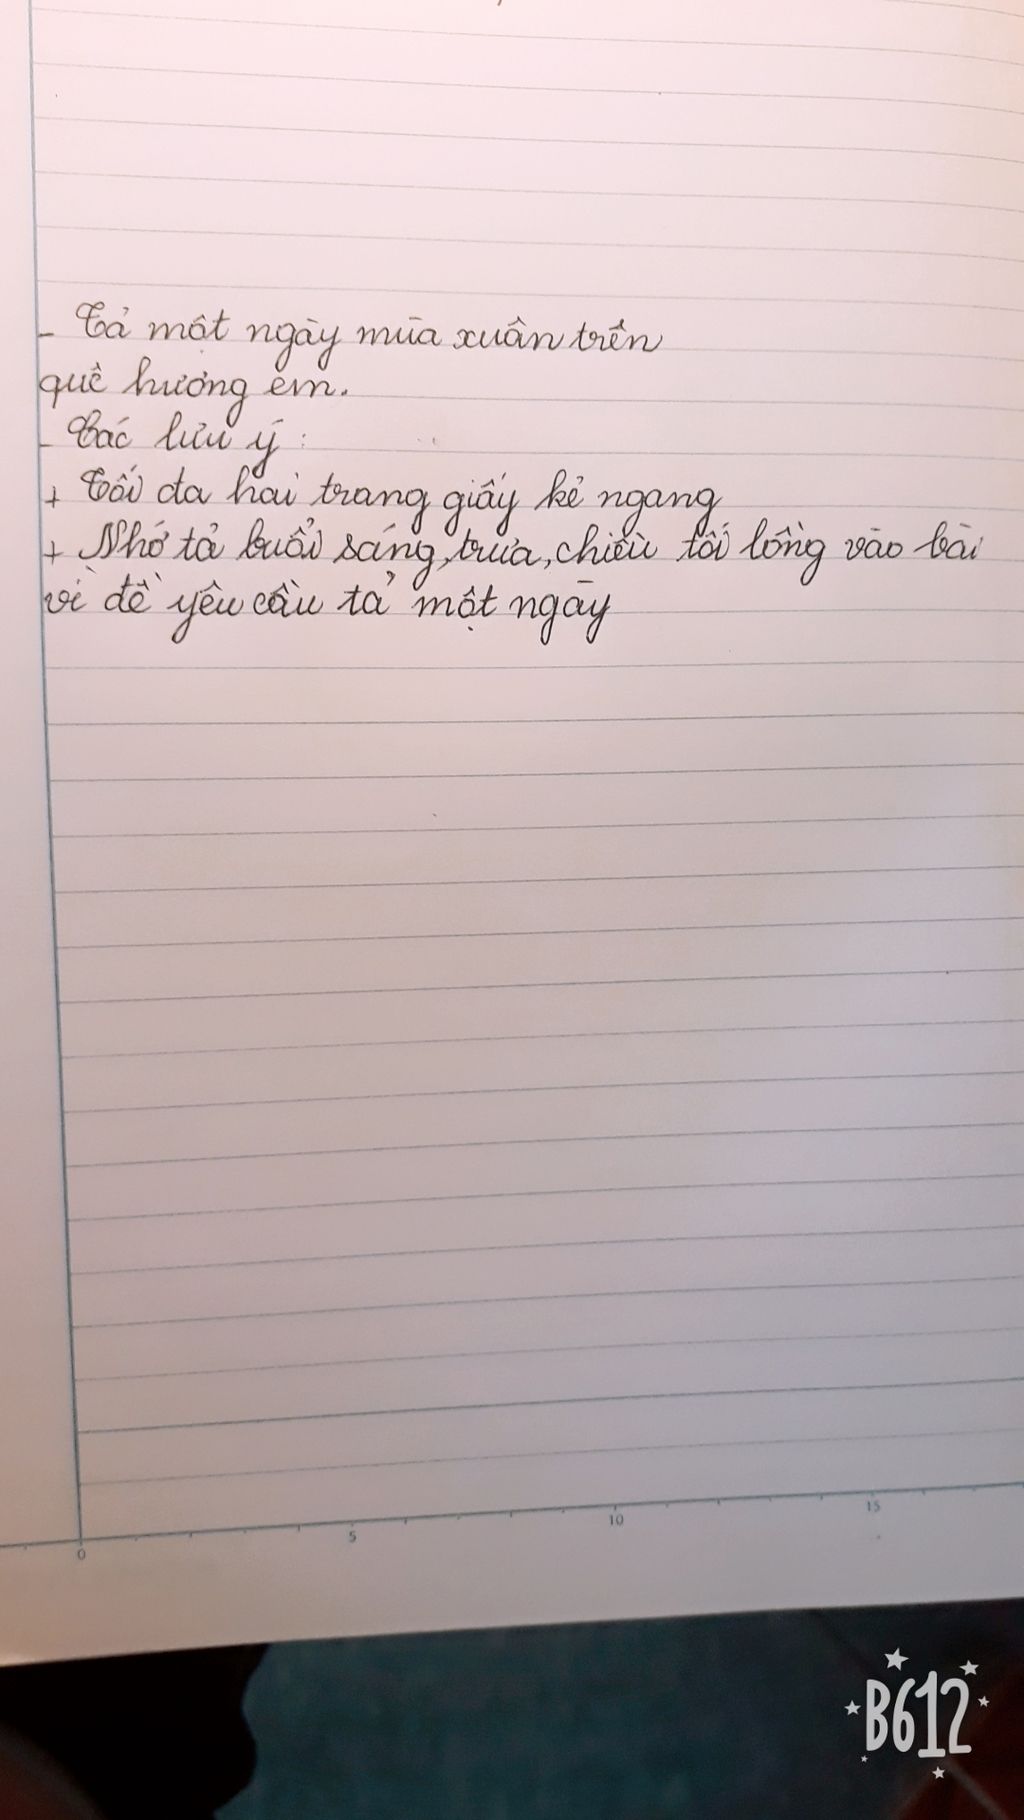 - Tả một ngày mùa xuân trên
quê hương em.
- Các lưu ý:
+ Tối đa hai trang giấy kẻ ngang
+ Nhớ tả buổi sáng, trưa, chiều tối lồng vào bài
vì đề yêu cầu tả một ngày
0 5 10 15
B612